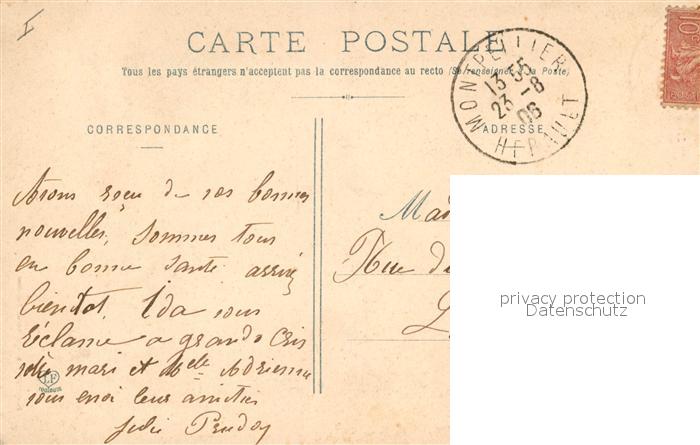 I
CARTE POSTALE
Tous les pays étrangers n'acceptent pas la correspondance au recto (Se renseigner à la Poste)
CORRESPONDANCE
ADRESSE
MONTPELLIER
13 35
23 -8
06
HERAULT
10
Avons reçu de vos bonnes
nouvelles, sommes tous
en bonne santé arrivez
bientot. Ida vous
réclame a grands cris
mari et Melle Adrienne
vous envoi leurs amitiés
Julie
Mad
Rue d
L
LF
TOULOUSE
privacy protection
Datenschutz